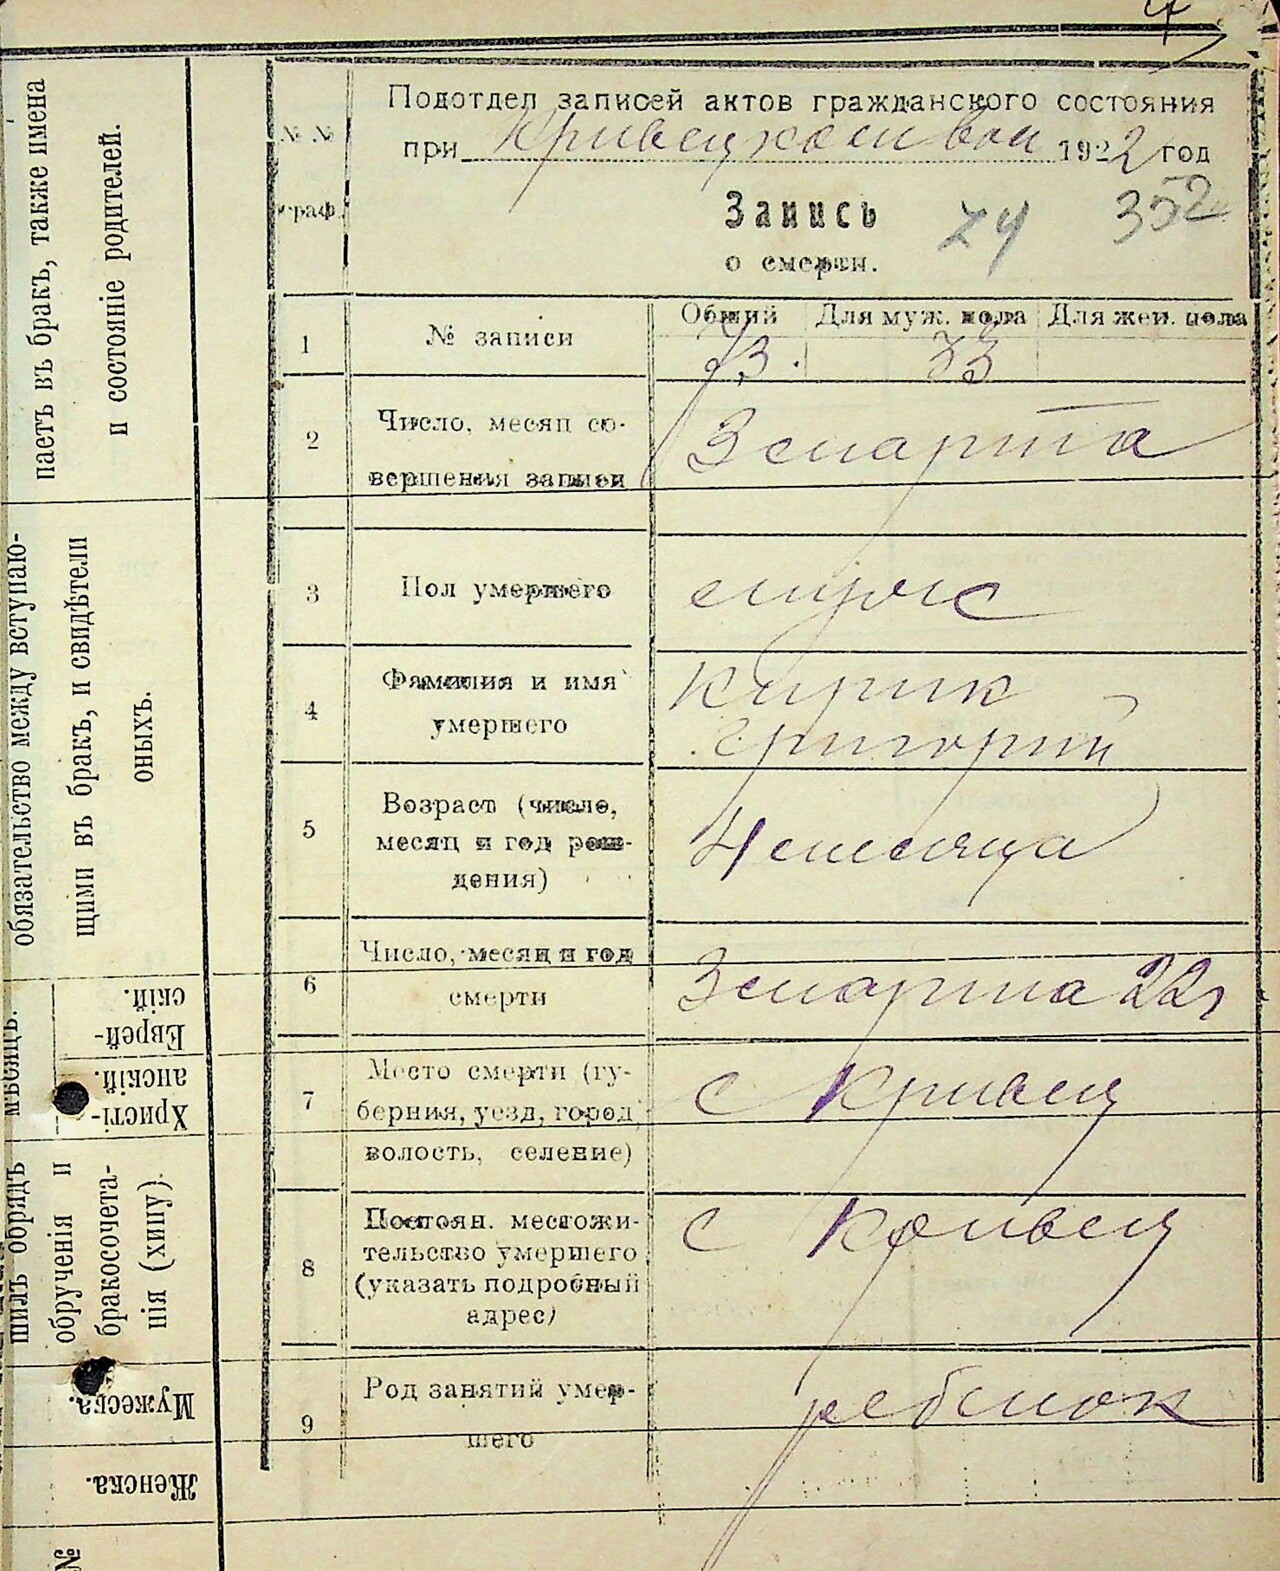 Подотдел записей актов гражданского состояния
при Кривецком вол 1922 год
№ №
граф.
Запись 74 352
о смерти.
Общий Для муж. пола Для жен. пола
1 № записи 73. 33
2 Число, месяц со-
вершения записи
3 марта
3 Пол умершего мужс
4 Фамилия и имя
умершего
Кирик
Григорий
5 Возраст (число,
месяц и год рож-
дения)
4 месяца
6 Число, месяц и год
смерти
3 марта 22г
7 Место смерти (гу-
берния, уезд, город,
волость, селение)
с Кривец
8 Постоян. местожи-
тельство умершего
(указать подробный
адрес)
с Кривец
9 Род занятий умер-
шего
ребенок
паетъ въ бракъ, также имена
и состояніе родителей.
обязательство между вступаю-
щими въ бракъ, и свидѣтели
оныхъ.
мѣсяцъ.
Еврей-
скій.
Христі-
анскій.
шилъ обрядъ
обрученія и
бракосочета-
нія (хипу).
Мужеска.
Женска.
№